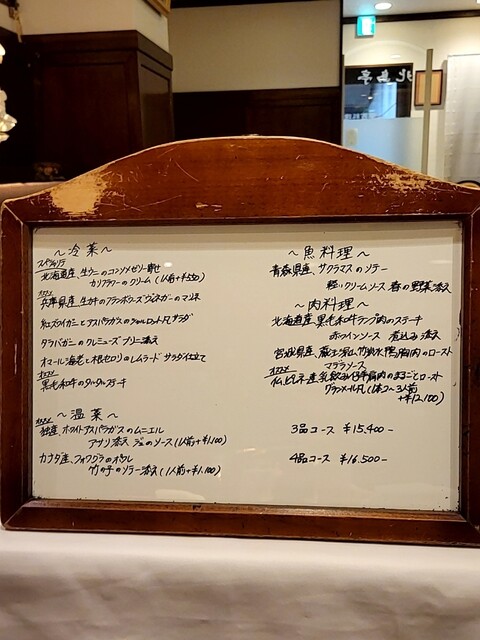 北島亭
〜冷菜〜
スペシャリテ
北海道産 生ウニのコンソメゼリー寄せ
カリフラワーのクリーム (1人前+¥550)
オススメ
兵庫県産 生カキのフランボワーズヴィネガーのマリネ
紅ズワイガニとアスパラガスのシャルロット風サラダ
タラバガニのクレミューズ ブリニ添え
オマール海老と根セロリのレムラード サラダ仕立て
オススメ
黒毛和牛のタルタルステーキ
〜温菜〜
オススメ
独産 ホワイトアスパラガスのムニエル
アサリ添え ジュのソース (1人前+¥1,100)
カナダ産 フォワグラのポワレ
竹の子のソテー添え (1人前+¥1,100)
〜魚料理〜
青森県産 サクラマスのソテー
軽いクリームソース 春の野菜添え
〜肉料理〜
北海道産 黒毛和牛ランプ肉のステーキ
赤ワインソース 煮込み添え
宮城県産 蔵王深山竹炭水鴨胸肉のロースト
マデラソース
オススメ
仏ピレネ産 乳飲み仔羊肉のまるごとロースト
グランメール風 (1本2〜3人前
+¥12,100)
3品コース ¥15,400-
4品コース ¥16,500-